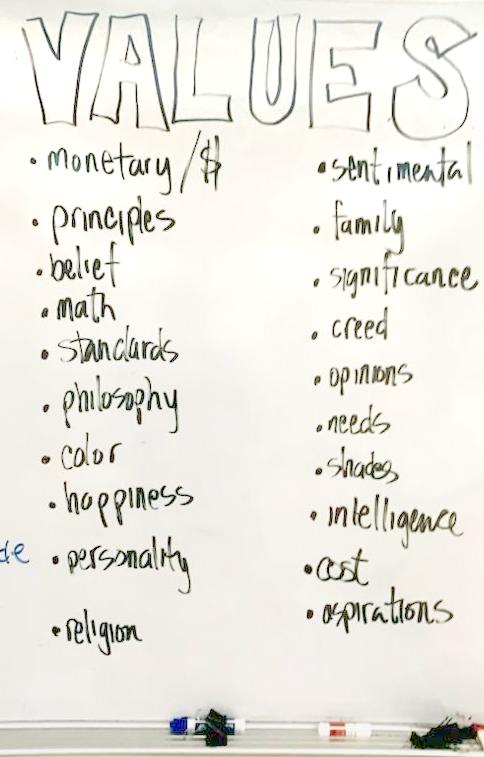 VALUES
• monetary/$
• principles
• belief
• math
• standards
• philosophy
• color
• happiness
• personality
• religion
• sentimental
• family
• significance
• creed
• opinions
• needs
• shades
• intelligence
• cost
• aspirations